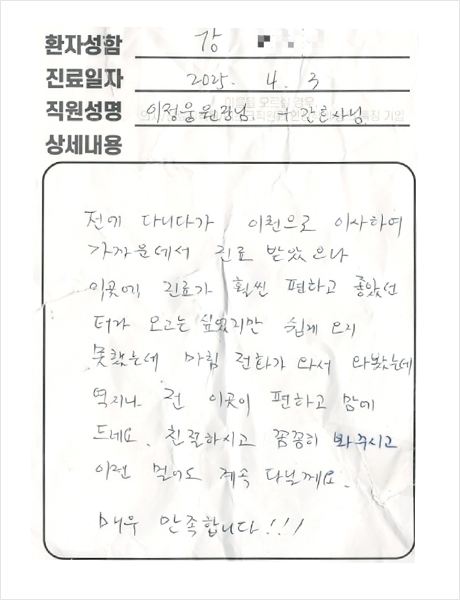 환자성함 강
진료일자 2025. 4. 3
직원성명 이정웅원장님 + 간호사님
상세내용
전에 다니다가 이천으로 이사하여
가까운데서 진료 받았으나
이곳에 진료가 훨씬 편하고 좋았선
터라 오고는 싶었지만 쉽게 오지
못했는데 마침 전화가 와서 와봤는데
역시나 전 이곳이 편하고 맘에
드네요. 친절하시고 꼼꼼히 봐주시고
이젠 멀어도 계속 다닐께요.
매우 만족합니다!!!